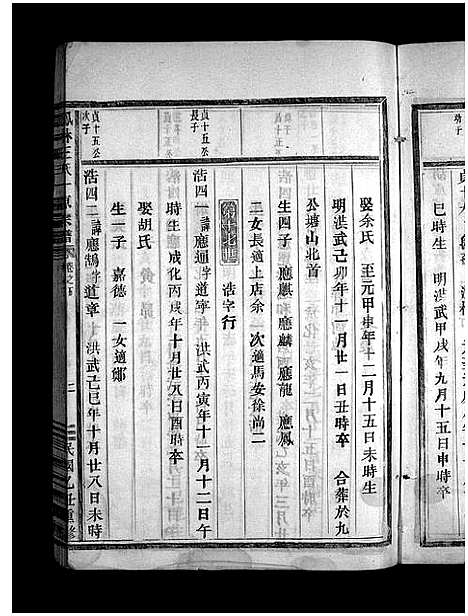 巳時生 明洪武甲戌年九月十五日申時卒
娶余氏 至元甲申年十二月十五日未時生
明洪武己卯年十一月廿一日丑時卒 合葬於九
公塘山北首
生四子 應麒 應麟 應龍 應鳳
二女長適上店余 次適馬安徐尚二
浩字行
貞十五公長子
浩四一 諱應通字道寧 洪武丙寅年十一月十二日午
時生 成化丙戌年十月廿八日酉時卒
娶胡氏
生一子 嘉德 一女適鄭
貞十五公次子
浩四二 諱應鵠字道章 洪武己巳年十月廿八日未時
卷之百
民國乙丑重修